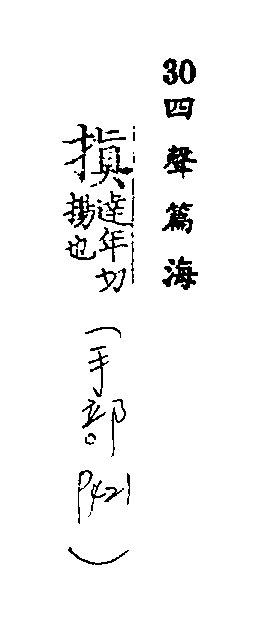 30四聲篇海
搷達年切
揚也
(手部。P421)